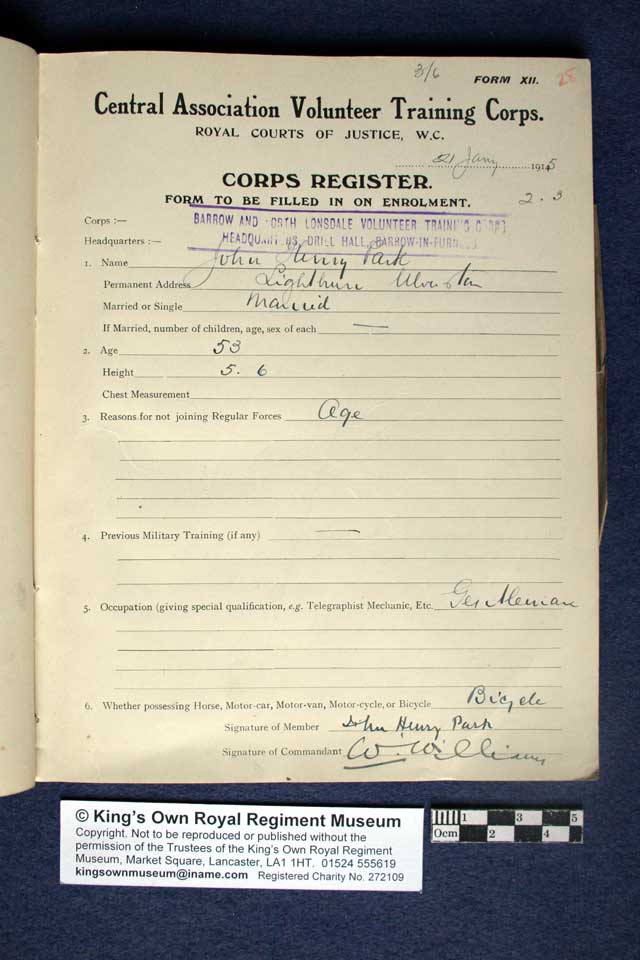 3/6 FORM XII. 28
Central Association Volunteer Training Corps.
ROYAL COURTS OF JUSTICE, W.C.
21 Jany 1915
CORPS REGISTER.
FORM TO BE FILLED IN ON ENROLMENT. 2 . 3
Corps :— BARROW AND NORTH LONSDALE VOLUNTEER TRAINING CORPS
Headquarters :— HEADQUARTERS, DRILL HALL, BARROW-IN-FURNESS
1. Name John Henry Park
Permanent Address Lightburn Ulverston
Married or Single Married
If Married, number of children, age, sex of each —
2. Age 53
Height 5. 6
Chest Measurement
3. Reasons for not joining Regular Forces Age
4. Previous Military Training (if any) —
5. Occupation (giving special qualification, e.g. Telegraphist Mechanic, Etc. Gentleman
6. Whether possessing Horse, Motor-car, Motor-van, Motor-cycle, or Bicycle Bicycle
Signature of Member John Henry Park
Signature of Commandant W. Williams
© King's Own Royal Regiment Museum
Copyright. Not to be reproduced or published without the
permission of the Trustees of the King's Own Royal Regiment
Museum, Market Square, Lancaster, LA1 1HT. 01524 555619
kingsownmuseum@iname.com Registered Charity No. 272109
1 3 5
0cm 2 4